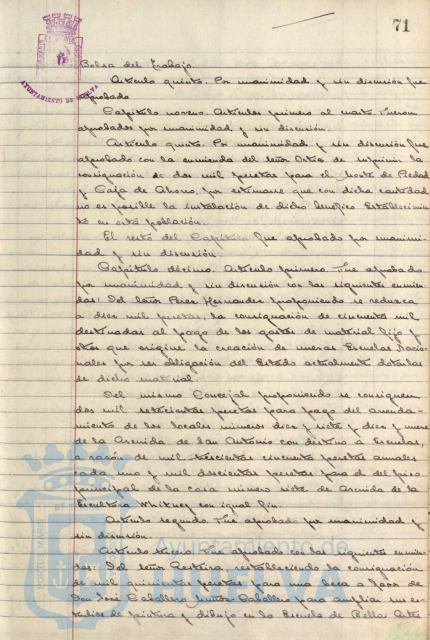 71
AYUNTAMIENTO DE HUELVA
Bolsa del Trabajo.
Artículo quinto. Por unanimidad y sin discusión fue
aprobado
Capítulo noveno. Artículos primero al cuarto. Fueron
aprobados por unanimidad y sin discusión.
Artículo quinto. Por unanimidad y sin discusión fue
aprobado con la enmienda del señor Ortiz de suprimir la
consignación de dos mil pesetas para el Monte de Piedad
y Caja de Ahorro, por estimarse que con dicha cantidad
no es posible la instalación de dicho benéfico Establecimien
to en esta población.
El resto del Capítulo fue aprobado por unanimi-
dad y sin discusión.
Capítulo décimo. Artículo primero. Fue aprobado
por unanimidad y sin discusión con las siguientes enmien-
das: Del señor Perez Hernandez proponiendo se reduzca
a diez mil pesetas, la consignación de cincuenta mil
destinadas al pago de los gastos de material fijo y
otros que origine la creación de nuevas Escuelas Nacio-
nales por ser obligación del Estado actualmente dotarlas
de dicho material.
Del mismo Concejal proponiendo se consignen
dos mil setecientas pesetas para pago del arrenda-
miento de los locales números diez y siete y diez y nueve
de la Avenida de San Antonio con destino a Escuelas,
a razón de mil trescientas cincuenta pesetas anuales
cada uno y mil doscientas pesetas para el del piso
principal de la casa número siete de Avenida de la
Escultora Whitney con igual fin.
Artículo segundo. Fue aprobado por unanimidad y
sin discusión.
Artículo tercero. Fue aprobado con las siguientes enmien-
das: Del señor restableciendo la consignación
de mil quinientas pesetas para una beca a favor de
Don José Caballero Muñoz-Caballero para ampliar sus es-
tudios de pintura y dibujo en la Escuela de Bellas Artes
Ayuntamiento de
HUELVA